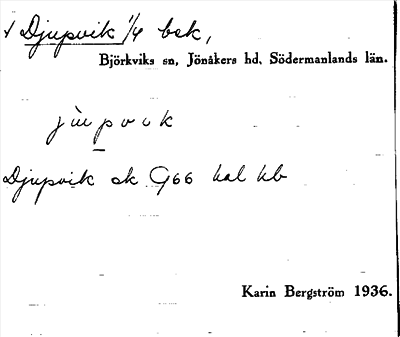 Djupvik 1/4 bek,
Björkviks sn, Jönåkers hd, Södermanlands län.
Djupvik ek G66 kal hb
Karin Bergström 1936.